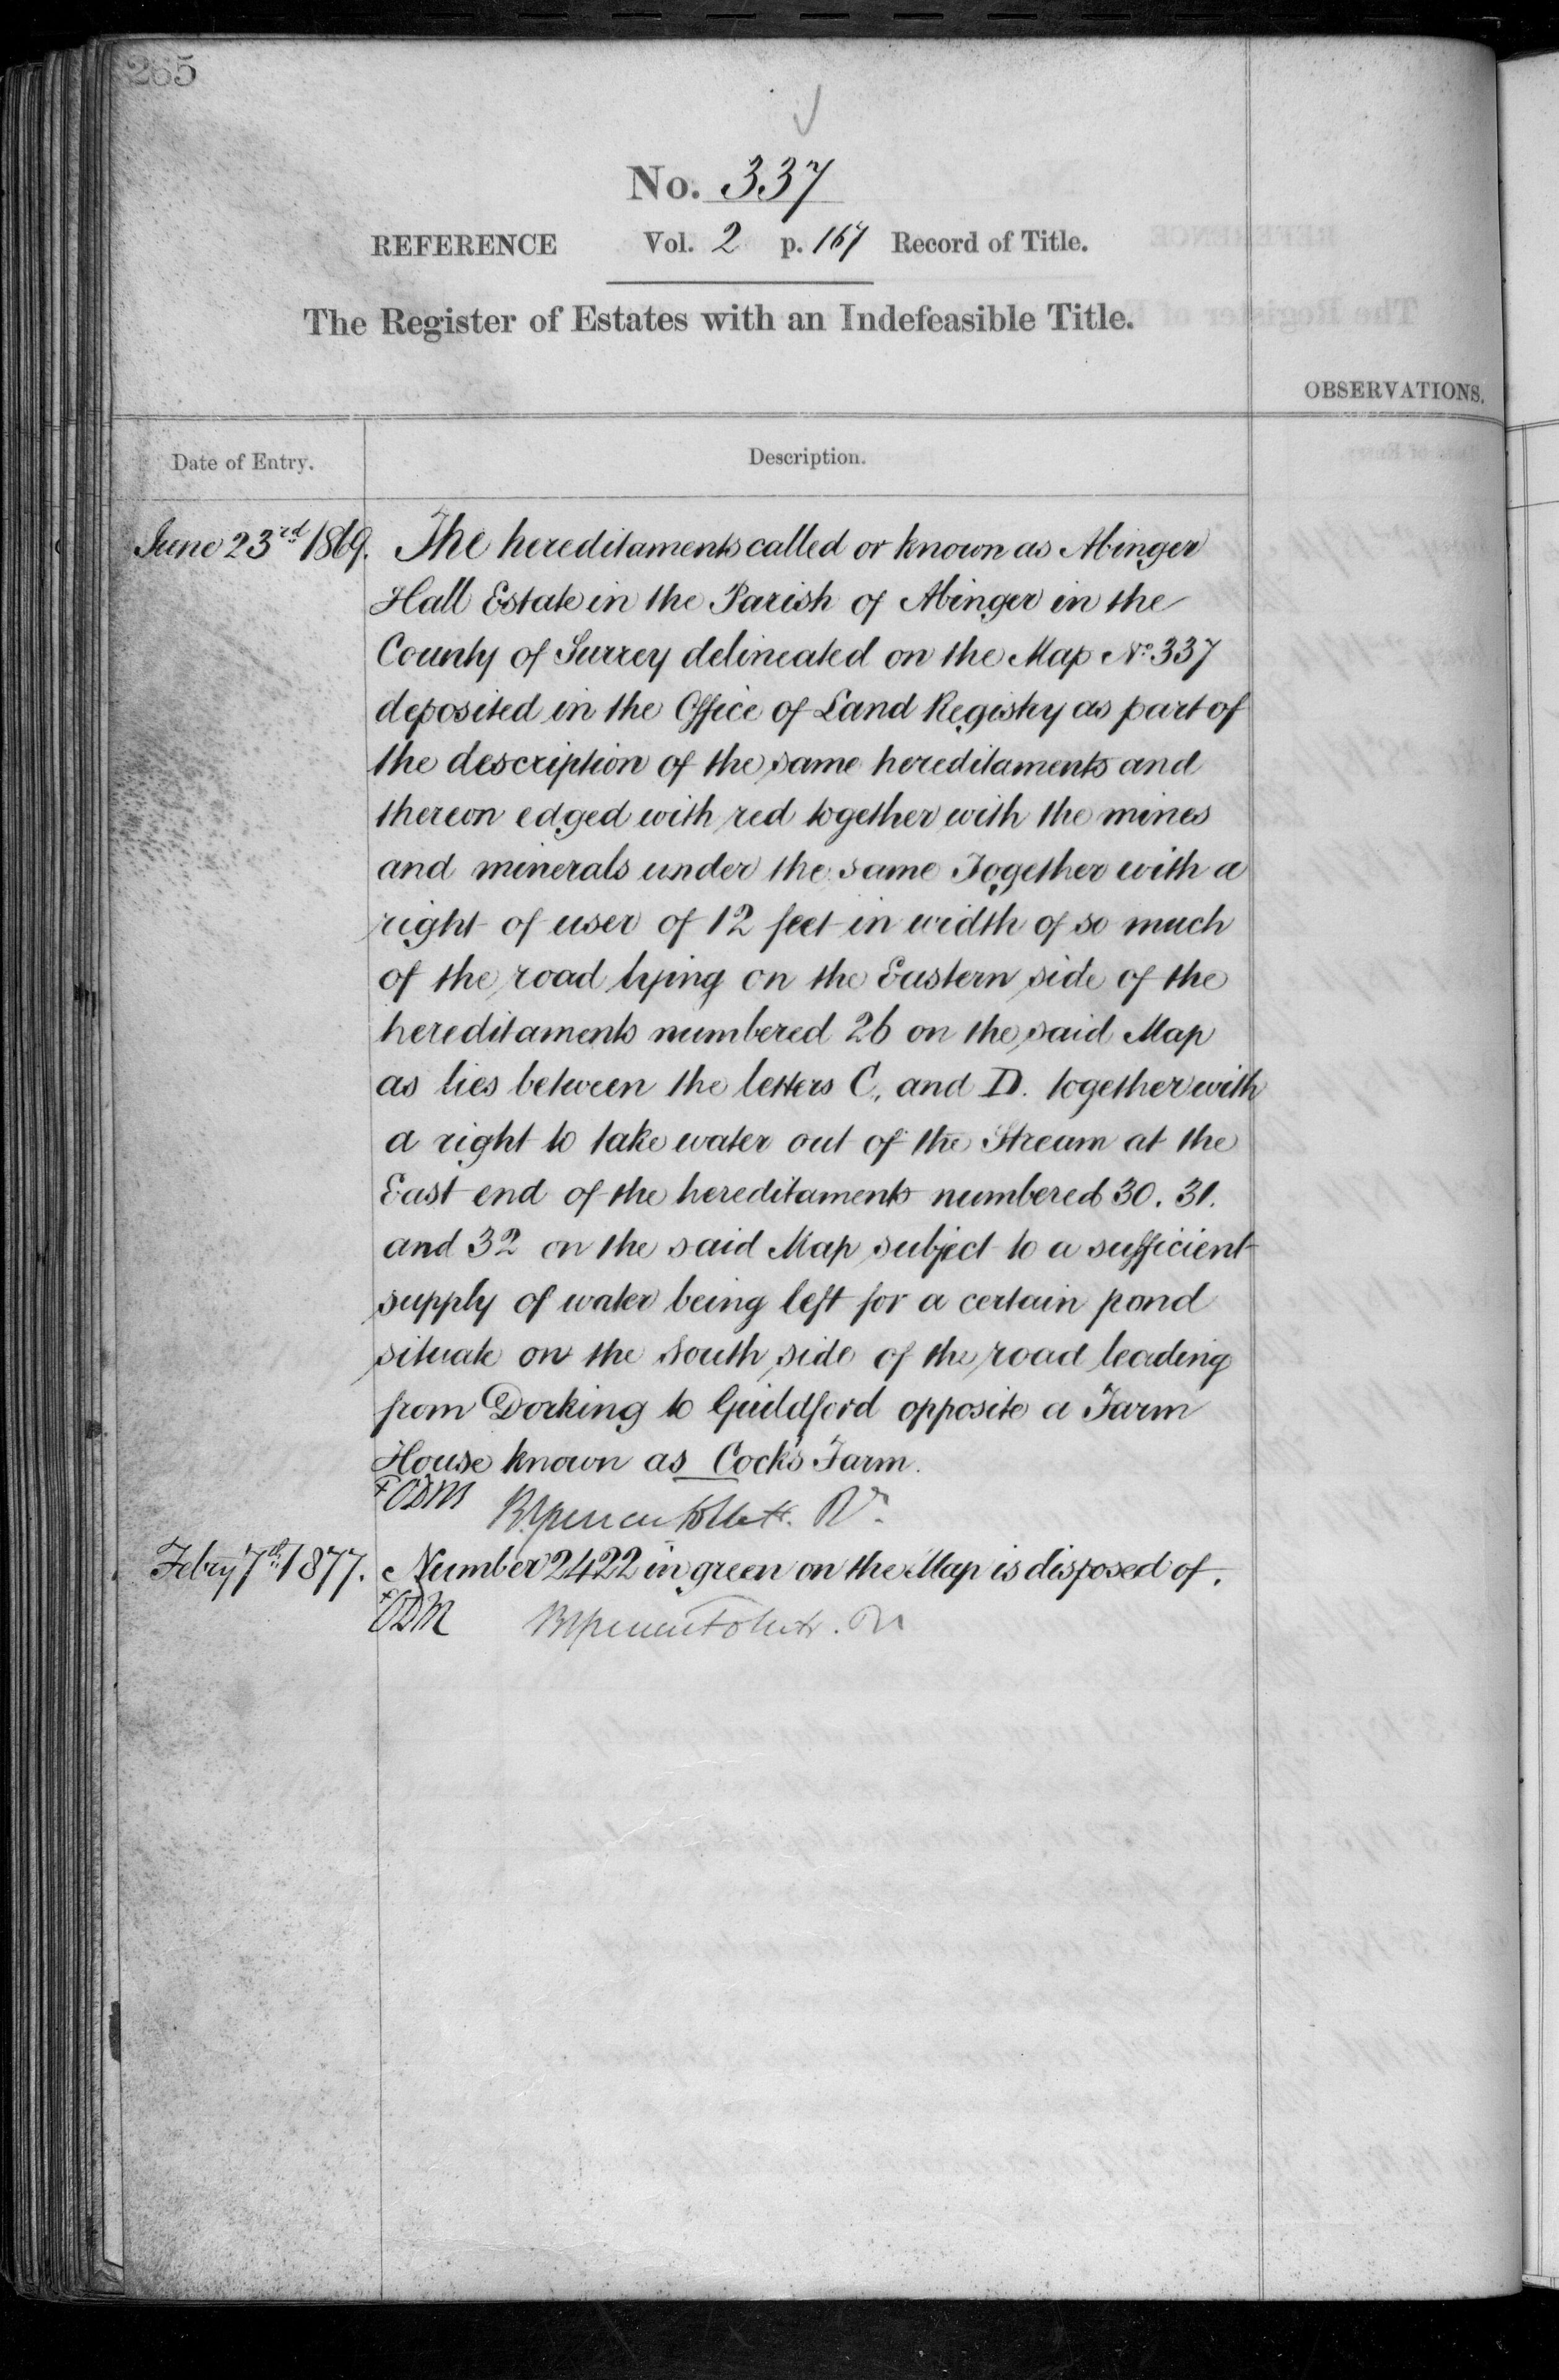 265
No. 337
REFERENCE Vol. 2 p. 167 Record of Title.
The Register of Estates with an Indefeasible Title.
OBSERVATIONS.
Date of Entry. Description.
June 23rd 1869. The hereditaments called or known as Abinger
Hall Estate in the Parish of Abinger in the
County of Surrey delineated on the Map No. 337
deposited in the Office of Land Registry as part of
the description of the same hereditaments and
thereon edged with red together with the mines
and minerals under the same Together with a
right of user of 12 feet in width of so much
of the road lying on the Eastern side of the
hereditaments numbered 26 on the said Map
as lies between the letters C. and D. together with
a right to take water out of the Stream at the
East end of the hereditaments numbered 30. 31.
and 32 on the said Map subject to a sufficient
supply of water being left for a certain pond
situate on the South side of the road leading
from Dorking to Guildford opposite a Farm
House known as Cock's Farm.
ODM
Febry 7th 1877. Number 2422 in green on the Map is disposed of.
ODM